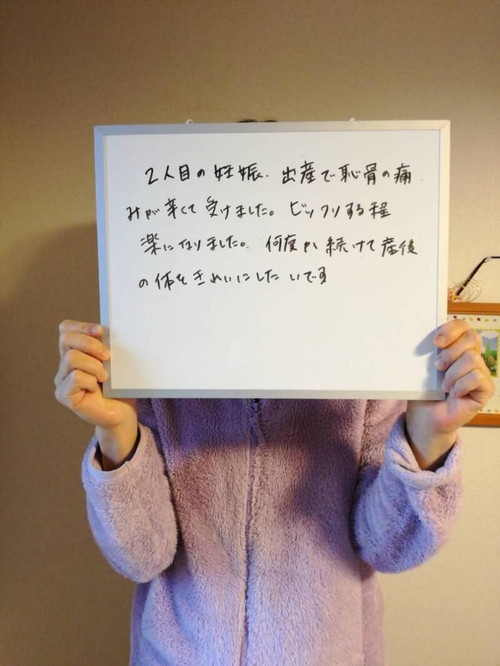 2人目の妊娠、出産で恥骨の痛
みが辛くて受けました。ビックリする程
楽になりました。何度か続けて産後
の体をきれいにしたいです